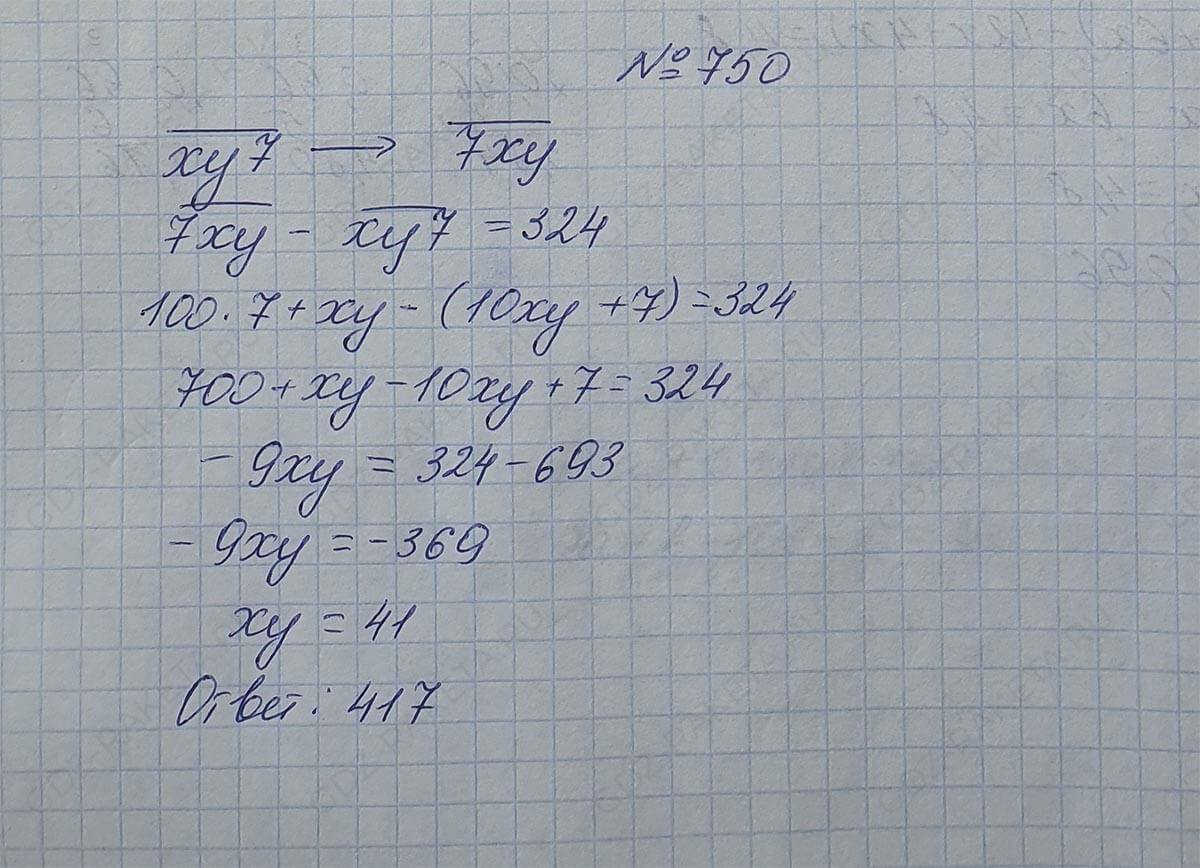 № 750
xy7 → 7xy
7xy - xy7 = 324
100 · 7 + xy - (10xy + 7) = 324
700 + xy - 10xy + 7 = 324
- 9xy = 324 - 693
- 9xy = - 369
xy = 41
Ответ: 417